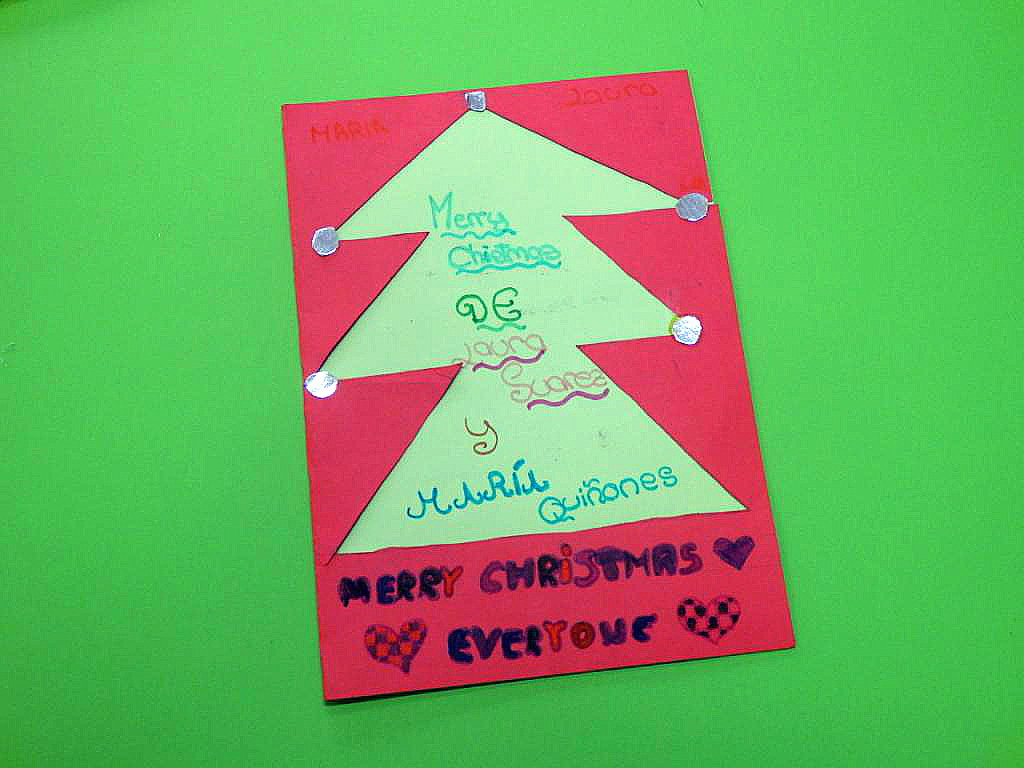 MARIA Laura
Merry
Chistmas
DE
Laura
Suarez
Y
MARÍA
Quiñones
MERRY CHRiSTMAS
EVERYONE